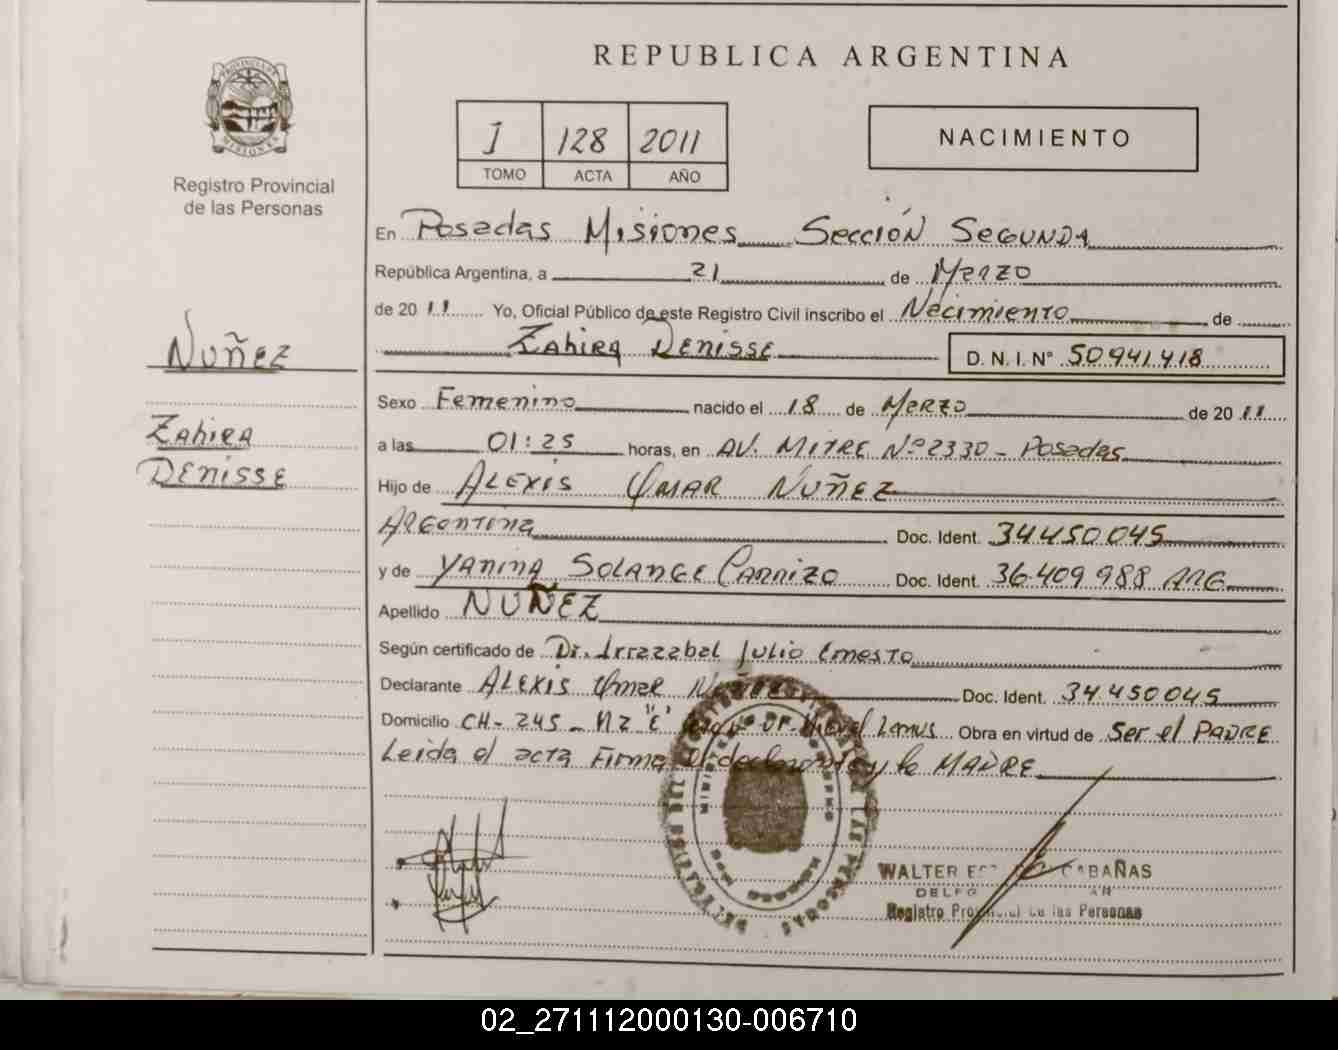 PROVINCIA DE
MISIONES
Registro Provincial
de las Personas
NUÑEZ
ZAhIRA
DENISSE
REPUBLICA ARGENTINA
I 128 2011
TOMO ACTA AÑO
NACIMIENTO
En Posadas Misiones Sección Segunda
República Argentina, a 21 de Marzo
de 20 11 Yo, Oficial Público de este Registro Civil inscribo el Nacimiento de
ZAhIRA DENISSE D. N. I. N° 50.941.418
Sexo Femenino nacido el 18 de Marzo de 20 11
a las 01:25 horas, en AV. MITRE Nº 2330 - Posadas
Hijo de ALEXIS OMAR NUÑEZ
ARGENTINA Doc. Ident. 34450045
y de YANINA SOLANGE CARRIZO Doc. Ident. 36.409.988 ARG
Apellido NUÑEZ
Según certificado de Dr. Irrazabal Julio Ernesto
Declarante ALEXIS OMAR NUÑEZ Doc. Ident. 34.450045
Domicilio CH- 245 - MZ "E" Miguel Lemus Obra en virtud de Ser el PADRE
Leida el acta Firma el declarante y la MADRE
WALTER CABAÑAS
Registro Provincial de las Personas
02_271112000130-006710